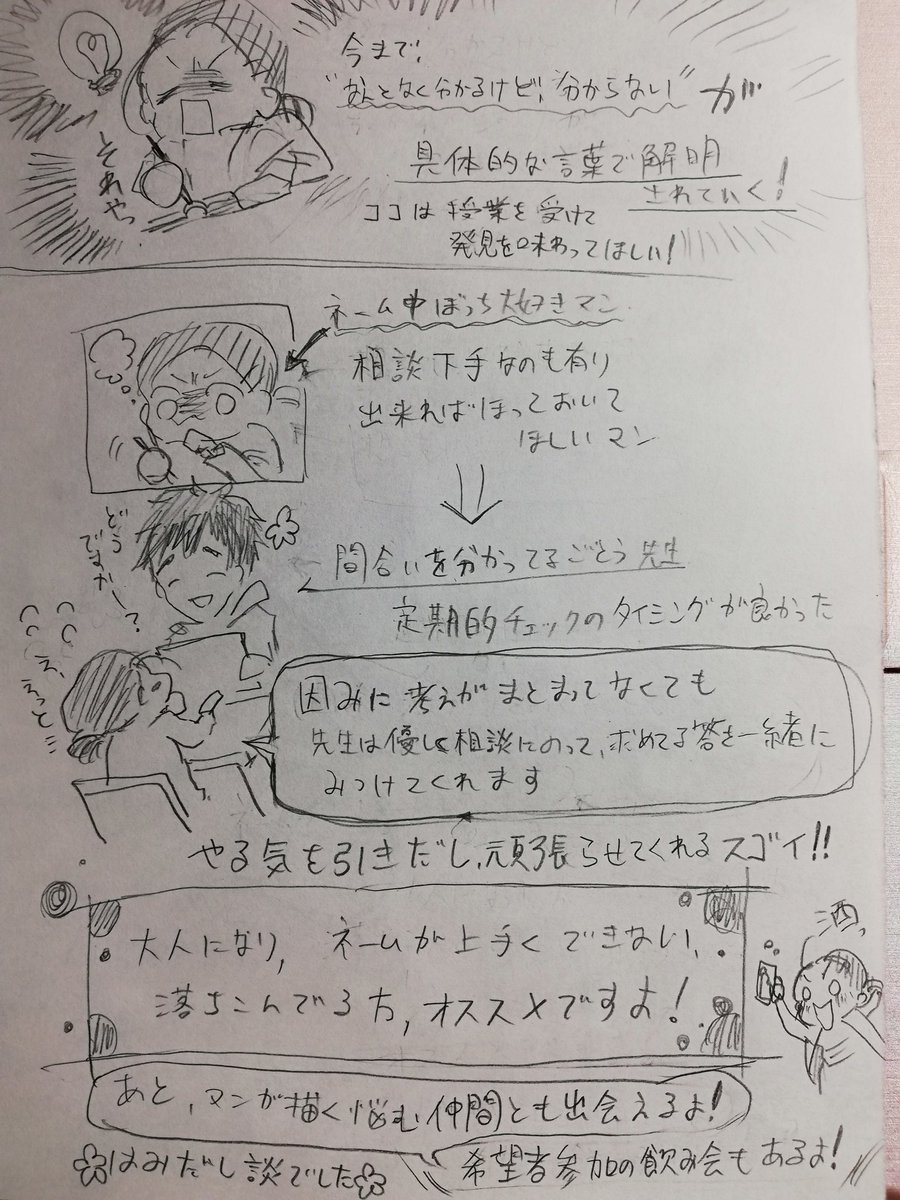 今まで、
"なんとなく分かるけど、分からない"が
具体的な言葉で解明
されていく!
ココは授業を受けて
発見を味わってほしい!
それやっ
ネーム中ぼっち大好きマン
相談下手なのも有り
出来ればほっておいて
ほしいマン
どう
ですかー?
間合いを分かってるごとう先生
定期的チェックのタイミングが良かった
え、えっと
因みに考えがまとまってなくても
先生は優しく相談にのって、求めてる答を一緒に
みつけてくれます
やる気を引きだし、頑張らせてくれるスゴイ!!
大人になり、ネームが上手くできない、
落ちこんでる方、オススメですよ!
酒っ
あと、マンガ描く悩む仲間とも出会えるよ!
希望者参加の飲み会もあるよ!
はみだし談でした